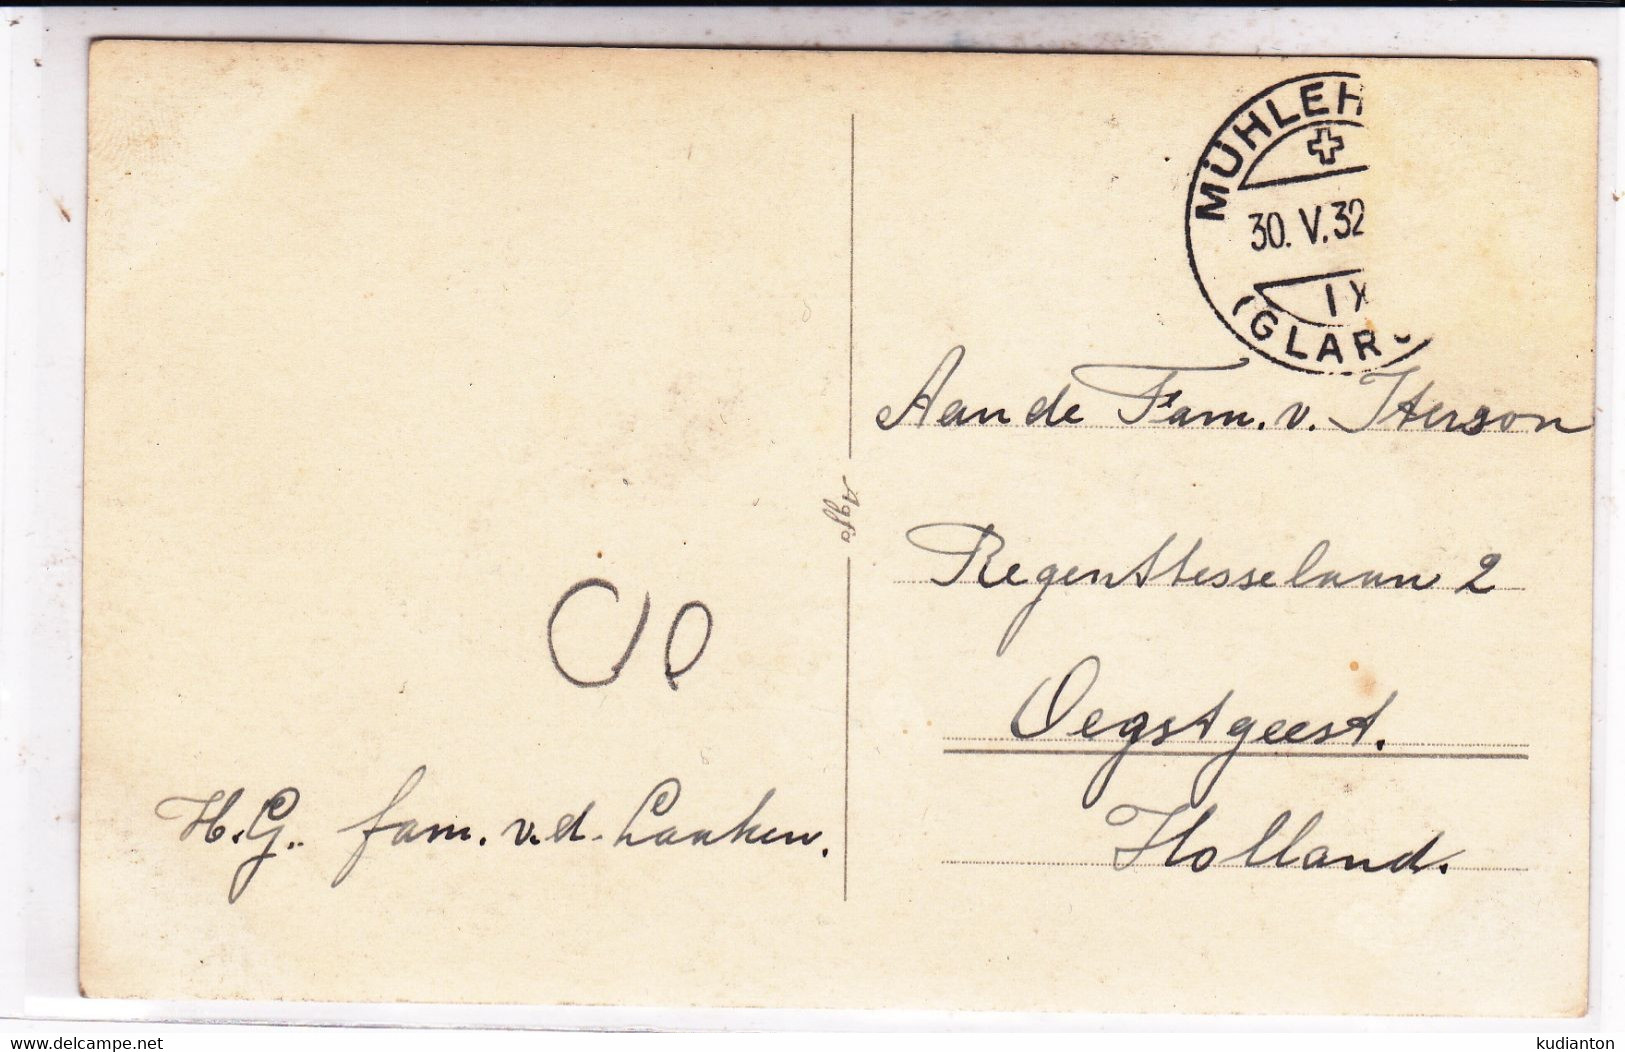 MÜHLEH
30. V. 32
IX
(GLAR
Aan de Fam. v. Iterson
Regentesselaan 2
Oegstgeest.
Holland.
Agfa
H.G. fam. v.d. Laaken.
www.delcampe.net
kudianton